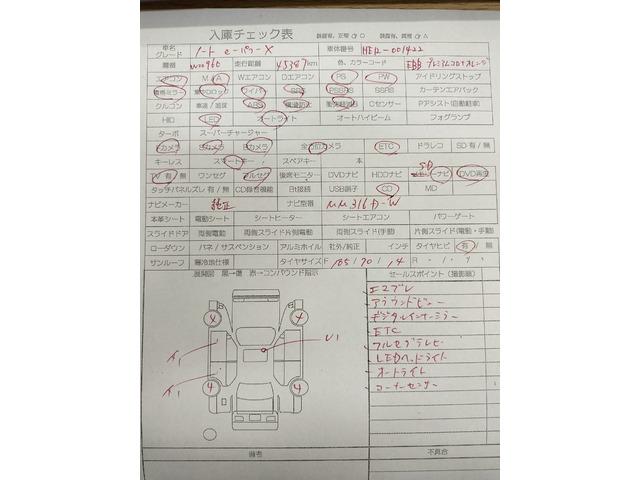 入庫チェック表
装備有、正常 ⇒ O 装備有、異常 ⇒ △
車名 グレード ノート e-パワーX 車体番号 HE12-001422
走行距離 45387km 色、カラーコード EBB プレミアムコロナオレンジ
エアコン M / A Wエアコン Dエアコン PS PW アイドリングストップ
電格ミラー 集中ロック ワイパー SRS PSSRS SSRS カーテンエアバック
クルコン 車速 / 追尾 ABS 横滑防止 衝突軽減B Cセンサー Pアシスト(自動駐車)
HID LED オートライト オートハイビーム フォグランプ
ターボ スーパーチャージャー
Fカメラ Sカメラ Bカメラ 全方位カメラ ETC ドラレコ SD 有 / 無
キーレス スマートキー スペアキー 本
TV 有 / 無 ワンセグ フルセグ 後席モニター DVDナビ HDDナビ SD ナビ DVD再生
タッチパネルズレ 有 / 無 CD録音機能 Bt接続 USB端子 CD MD
ナビメーカー 純正 ナビ型番 MM316D-W
本革シート 電動シート シートヒーター シートエアコン パワーゲート
スライドドア 両側電動 両側スライド片側電動 両側スライド(手動) 片側スライド(電動・手動)
ローダウン バネ / サスペンション アルミホイル 社外/純正 インチ タイヤヒビ 有 / 無
サンルーフ 寒冷地仕様 タイヤサイズ F 185 / 70 / 14 R
展開図 黒→傷 赤→コンパウンド指示 セールスポイント (撮影者)
エマブレ
アラウンドビュー
デジタルインナーミラー
ETC
フルセグテレビ
LEDヘッドライト
オートライト
コーナーセンサー
4 4
4 4
備考 不具合